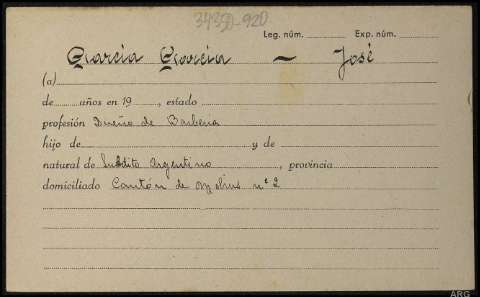 3435-920
Leg. núm. Exp. núm.
Garcia Garcia — José
(a)
de años en 19 , estado
profesión Dueño de Barberia
hijo de y de
natural de Subdito Argentino , provincia
domiciliado Cantón de nº 2
ARG